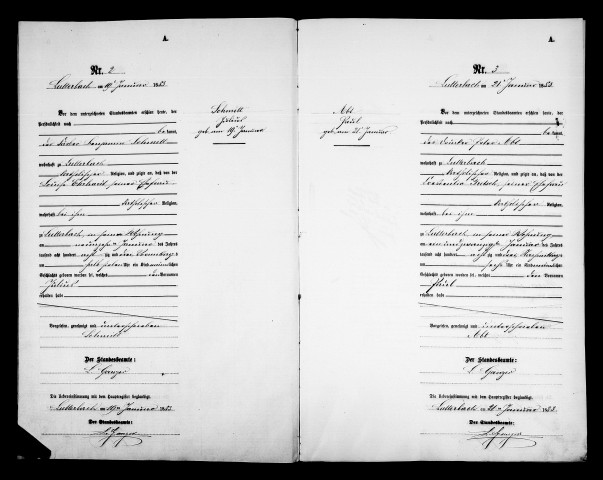 A.
Nr. 2
Lutterbach am 19 Januar 1883.
Vor dem unterzeichneten Standesbeamten erschien heute, der
Persönlichkeit nach
be kannt,
der Benjamin Schmitt
wohnhaft zu Lutterbach
katholischer Religion, und zeigte an, daß von der
Ehrhardt seiner Ehefrau
katholischer Religion,
wohnhaft bei ihm
zu Lutterbach, in seiner Wohnung
am neunzehn Januar des Jahres
tausend acht hundert achtzig und drei
Uhr ein Kind männlichen
Geschlecht geboren worden sei, welches den Vornamen
Julius
erhalten habe
Vorgelesen, genehmigt und unterschrieben
Schmitt
Der Standesbeamte:
L. Ganzer
Die Uebereinstimmung mit dem Hauptregister beglaubigt.
Lutterbach am 19 Januar 1883.
Der Standesbeamte:
L. Ganzer
Schmitt
Julius
geb. am 19 Januar
A.
Nr. 3
Lutterbach am 21 Januar 1883.
Vor dem unterzeichneten Standesbeamten erschien heute, der
Persönlichkeit nach
be kannt,
der Peter Abt
wohnhaft zu Lutterbach
katholischer Religion, und zeigte an, daß von der
seiner Ehefrau
katholischer Religion,
wohnhaft bei ihm
zu Lutterbach, in seiner Wohnung
am ein und zwanzig Januar des Jahres
tausend acht hundert achtzig und drei
sechs Uhr ein Kind männlichen
Geschlecht geboren worden sei, welches den Vornamen
erhalten habe
Vorgelesen, genehmigt und unterschrieben
Abt
Der Standesbeamte:
L. Ganzer
Die Uebereinstimmung mit dem Hauptregister beglaubigt.
Lutterbach am 21 Januar 1883.
Der Standesbeamte:
L. Ganzer
Abt
geb. am 21 Januar